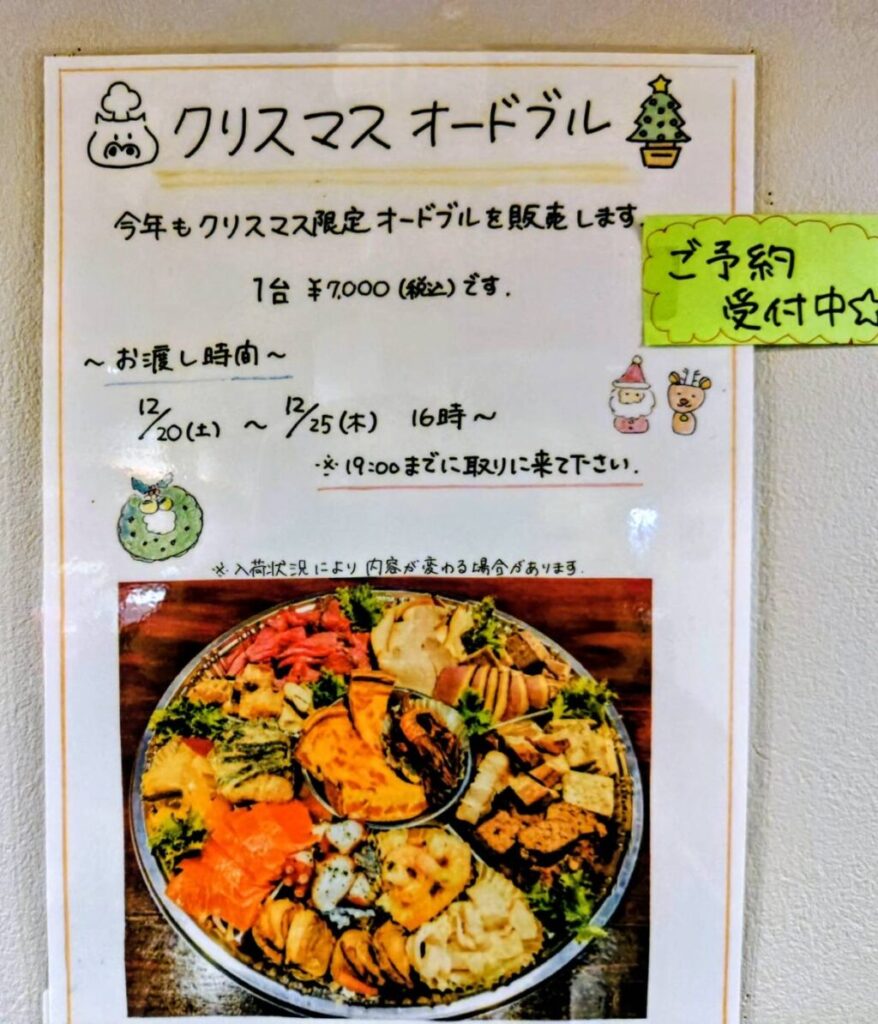 クリスマス オードブル
今年もクリスマス限定オードブルを販売します。
1台 ¥7,000(税込)です.
ご予約
受付中☆
～お渡し時間～
12/20(土) ～ 12/25(木) 16時～
※19:00までに取りに来て下さい.
※入荷状況により内容が変わる場合があります.